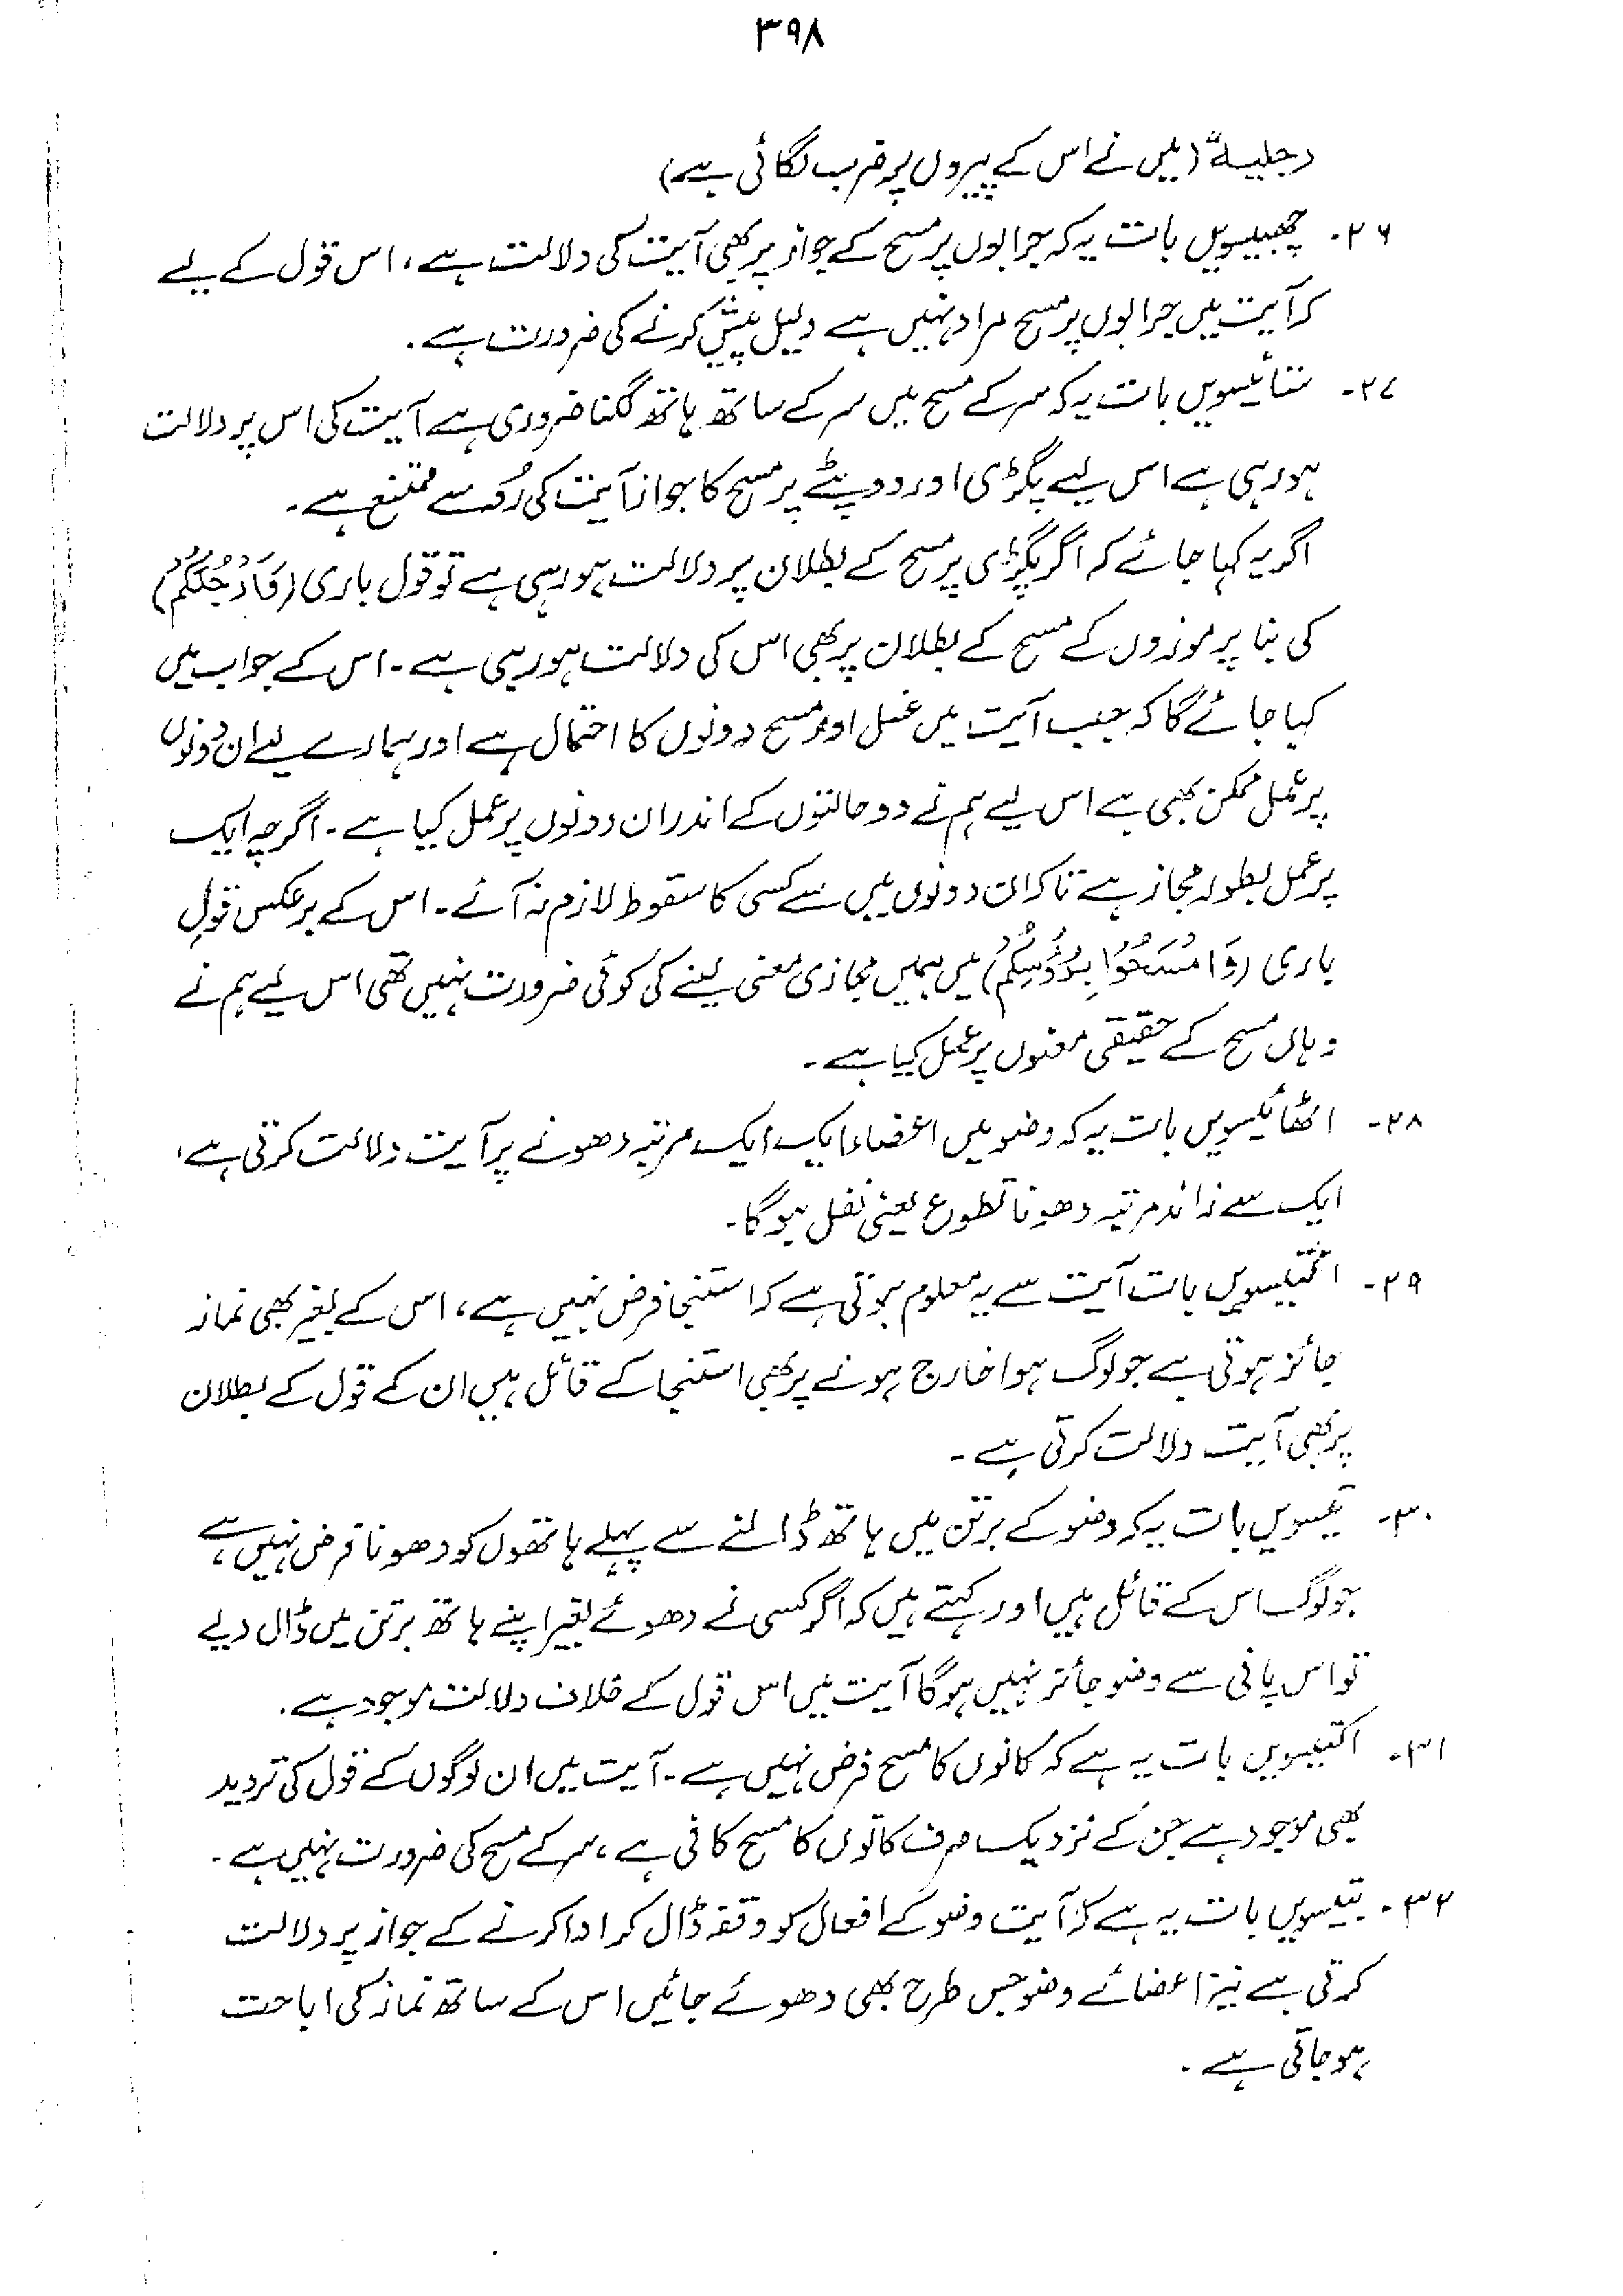 ۳۹۸
رجلیہ" (میں نے اس کے پیروں پر ضرب لگائی ہے)
۲۶۔ چھبیسویں بات یہ کہ جرابوں پر مسح کے جواز پر بھی آیت کی دلالت ہے، اس قول کے لیے
کہ آیت میں جرابوں پر مسح مراد نہیں ہے دلیل پیش کرنے کی ضرورت ہے۔
۲۷۔ ستائیسویں بات یہ کہ سر کے مسح میں سر کے ساتھ ہاتھ لگنا ضروری ہے آیت کی اس پر دلالت
ہو رہی ہے اس لیے پگڑی اور دوپٹے پر مسح کا جواز آیت کی رُو سے ممتنع ہے۔
اگر یہ کہا جائے کہ اگر پگڑی پر مسح کے بطلان پر دلالت ہو رہی ہے تو قول باری (وَاَرْجُلَكُمْ)
کی بنا پر موزوں کے مسح کے بطلان پر بھی اس کی دلالت ہو رہی ہے۔ اس کے جواب میں
کہا جائے گا کہ جب آیت میں غسل اور مسح دونوں کا احتمال ہے اور ہمارے لیے ان دونوں
پر عمل ممکن بھی ہے اس لیے ہم نے دو حالتوں کے اندر ان دونوں پر عمل کیا ہے۔ اگرچہ ایک
پر عمل بطور مجاز ہے تاکہ ان دونوں میں سے کسی کا سقوط لازم نہ آئے۔ اس کے برعکس قولِ
باری (وَامْسَحُوْا بِرُءُوْسِكُمْ) میں ہمیں مجازی معنی لینے کی کوئی ضرورت نہیں تھی اس لیے ہم نے
وہاں مسح کے حقیقی معنوں پر عمل کیا ہے۔
۲۸۔ اٹھائیسویں بات یہ کہ وضو میں اعضاء ایک ایک مرتبہ دھونے پر آیت دلالت کرتی ہے،
ایک سے زائد مرتبہ دھونا تطوع یعنی نفل ہوگا۔
۲۹۔ انتیسویں بات آیت سے یہ معلوم ہوتی ہے کہ استنجا فرض نہیں ہے، اس کے بغیر بھی نماز
جائز ہوتی ہے جو لوگ ہوا خارج ہونے پر بھی استنجا کے قائل ہیں ان کے قول کے بطلان
پر بھی آیت دلالت کرتی ہے۔
۳۰۔ تیسویں بات یہ کہ وضو کے برتن میں ہاتھ ڈالنے سے پہلے ہاتھوں کو دھونا فرض نہیں ہے،
جو لوگ اس کے قائل ہیں اور کہتے ہیں کہ اگر کسی نے دھوئے بغیر اپنے ہاتھ برتن میں ڈال دیے
تو اس پانی سے وضو جائز نہیں ہوگا آیت میں اس قول کے خلاف دلالت موجود ہے۔
۳۱۔ اکتیسویں بات یہ ہے کہ کانوں کا مسح فرض نہیں ہے۔ آیت میں ان لوگوں کے قول کی تردید
بھی موجود ہے جن کے نزدیک صرف کانوں کا مسح کافی ہے، سر کے مسح کی ضرورت نہیں ہے۔
۳۲۔ بتیسویں بات یہ ہے کہ آیت وضو کے افعال کو وقفہ ڈال کر ادا کرنے کے جواز پر دلالت
کرتی ہے نیز اعضائے وضو جس طرح بھی دھوئے جائیں اس کے ساتھ نماز کی اباحت
ہو جاتی ہے۔